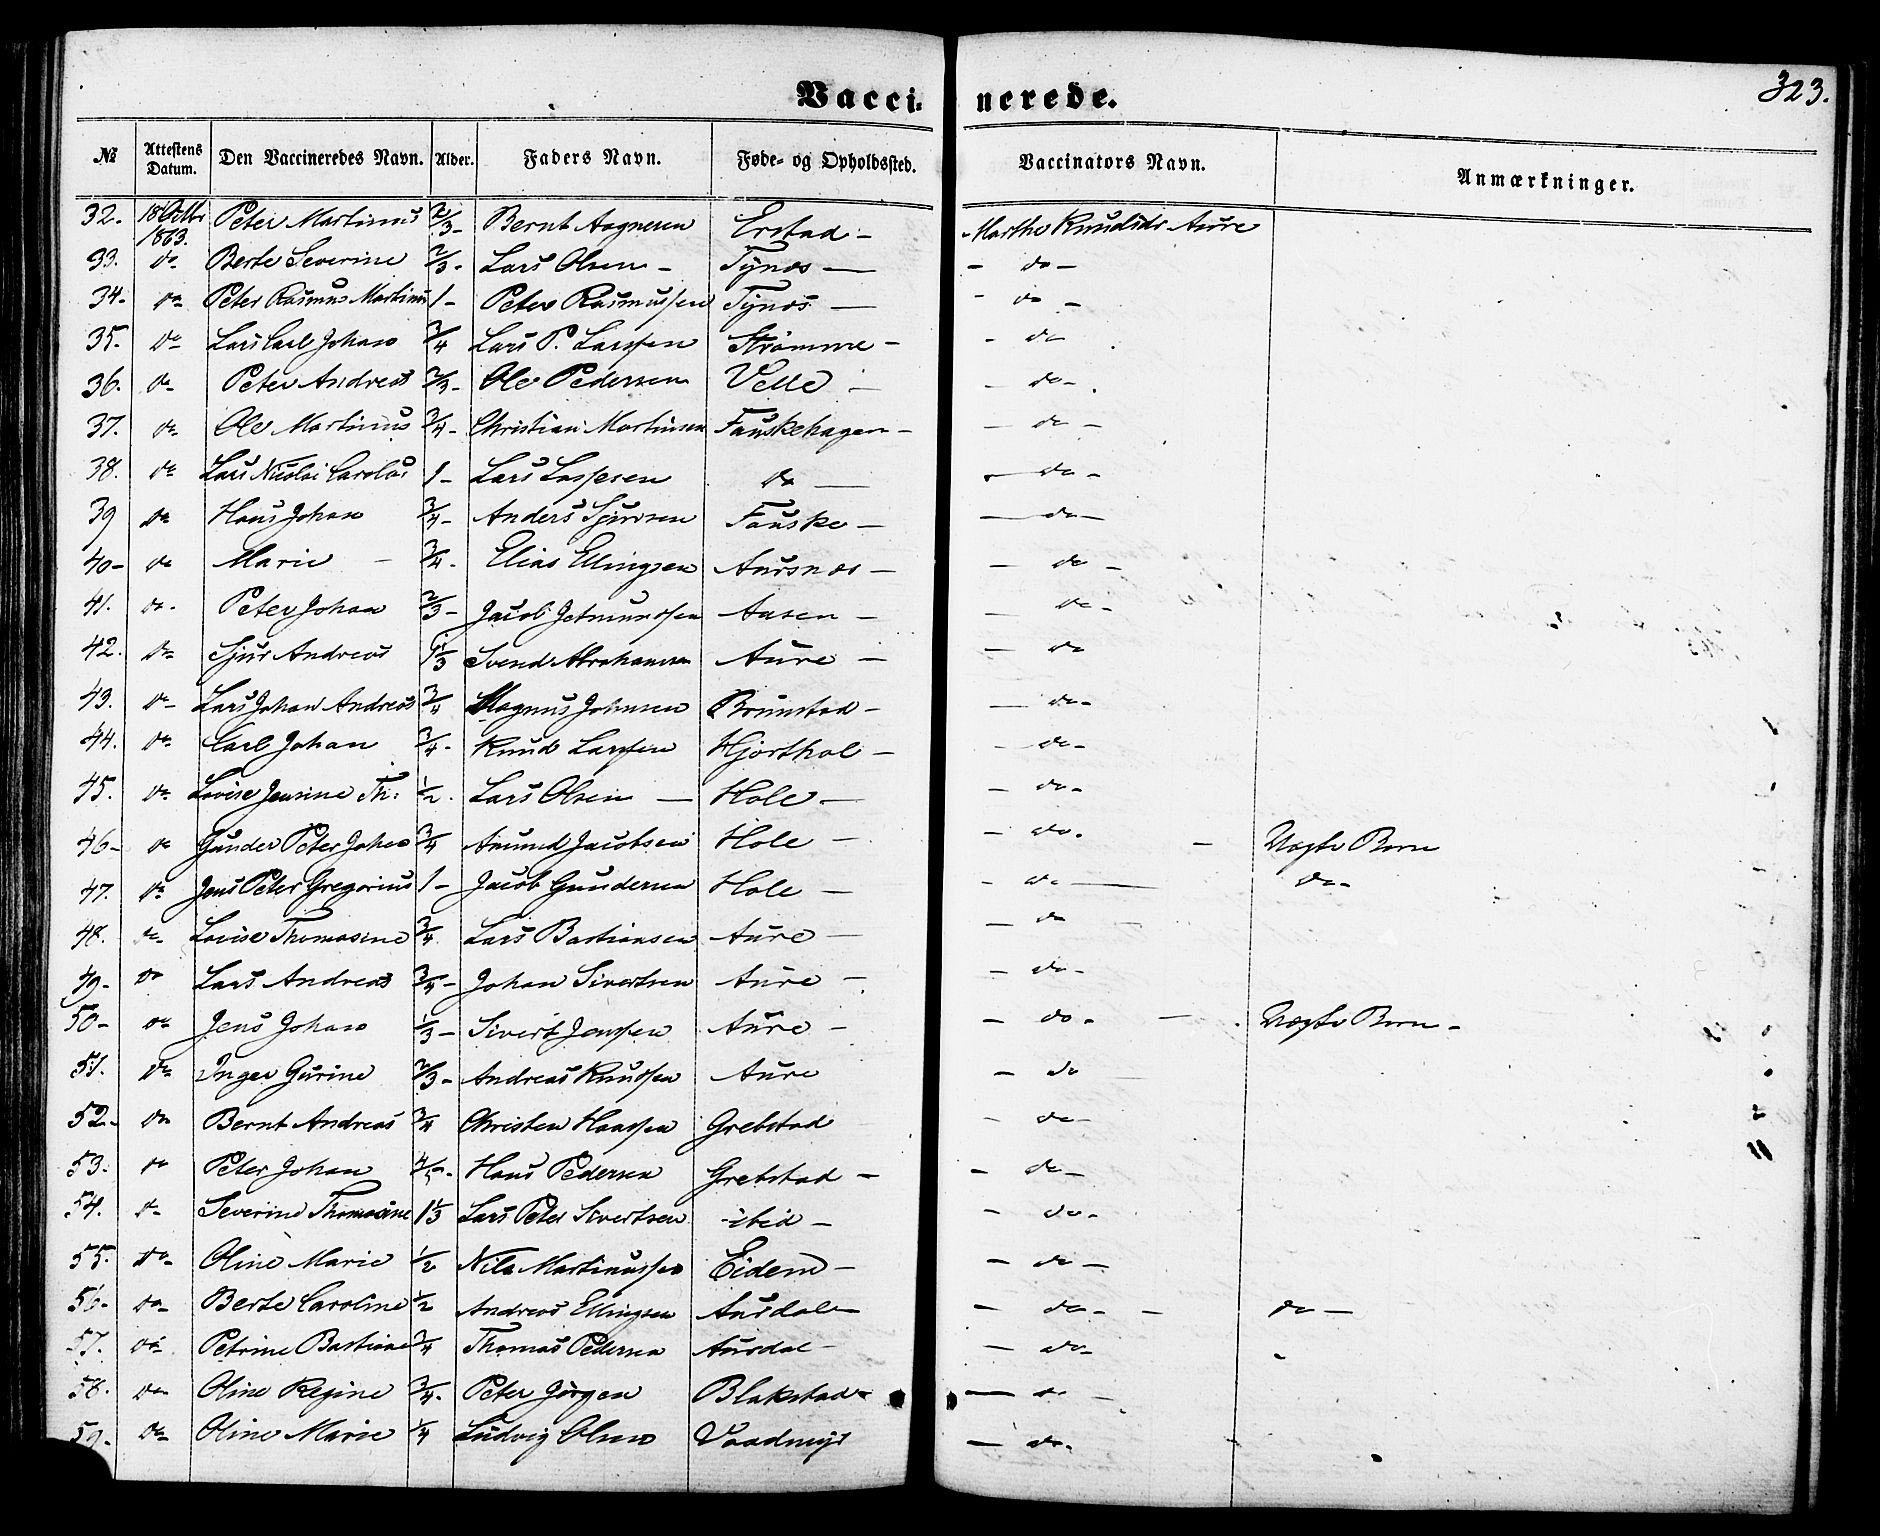 Vaccinerede.
323.
№ Attestens Datum. Den Vaccineredes Navn. Alder. Faders Navn. Føde- og Opholdssted. Vaccinators Navn. Anmærkninger.
32. 18 Octbr 1863. Peter Martinus 2/3 - Bernt Aagnesen Erstad - Marthe Knudsdr Aure
33. do Berte Severine 2/3 - Lars Olsen - Tynes - - do -
34 - do Peter Rasmus Martinus 1 - Peter Rasmussen Tynes - - do -
35. do Lars Carl Johan 3/4 Lars P. Larssen Strømme - - do
36. do Peter Andreas 2/3 - Ole Pedersen Velle - - do -
37. do Ole Martinus 3/4 - Christian Martinsen Fauskehagen - - do -
38. do Lars Nicolai Carolus 1 - Lars Lassesen do - - do -
39 do Hans Johan 3/4 - Anders Sjursen Fauske - - do -
40 - do Marie - 3/4 - Elias Ellingsen Aursnes - - do -
41. do - Peter Johan 2/3 - Jacob Jetmundsen Aasen - - do -
42. do Sjur Andreas 1 1/3 Svend Abrahamsen Aure - - do
43. do - Lars Johan Andreas 3/4 Magnus Johnsen Brunstad - - do -
44. do Carl Johan 3/4 - Knud Larssen Hjorthol - - do -
45. do Lovise Jensine Th: 1/2 Lars Olsen - Hole - - do -
46 - do Gunder Peter Johan 3/4 Amund Jacobsen Hole - - do. - Uægte Barn
47. do Jens Peter Gregorius 1 - Jacob Gundersen Hole - - do - do -
48. do Lovise Thomasine 3/4 Lars Bastiansen Aure - - do
49 - do Lars Andreas 3/4 - Johan Sivertsen Aure - - do -
50 - do Jens Johan 1/3 - Sivert Jenssen Aure - - do - - Uægte Barn -
51. do Inger Gurine 2/3 - Andreas Knudsen Aure - do
52 - do Bernt Andreas 3/4 Christen Hanssen Grebstad - do -
53. do Peter Johan 4/5 - Hans Pedersen Grebstad - - do -
54. do Severine Thomasine 1 1/3 Lars Peter Sivertsen - ibid - - do -
55. do - Oline Marie 1/2 Nils Martinussen Eidem - - do -
56 - do - Berte Caroline 1/2 Andreas Ellingsen Aursdal - - do - - do -
57. do Petrine Bastiane 3/4 Thomas Pedersen Aursdal - - do -
58. do - Oline Regine 3/4. Peter Jörgen Blakstad - - do -
59 - do - Oline Marie 1/4 Ludvig Olsen Vaadmyr - do -